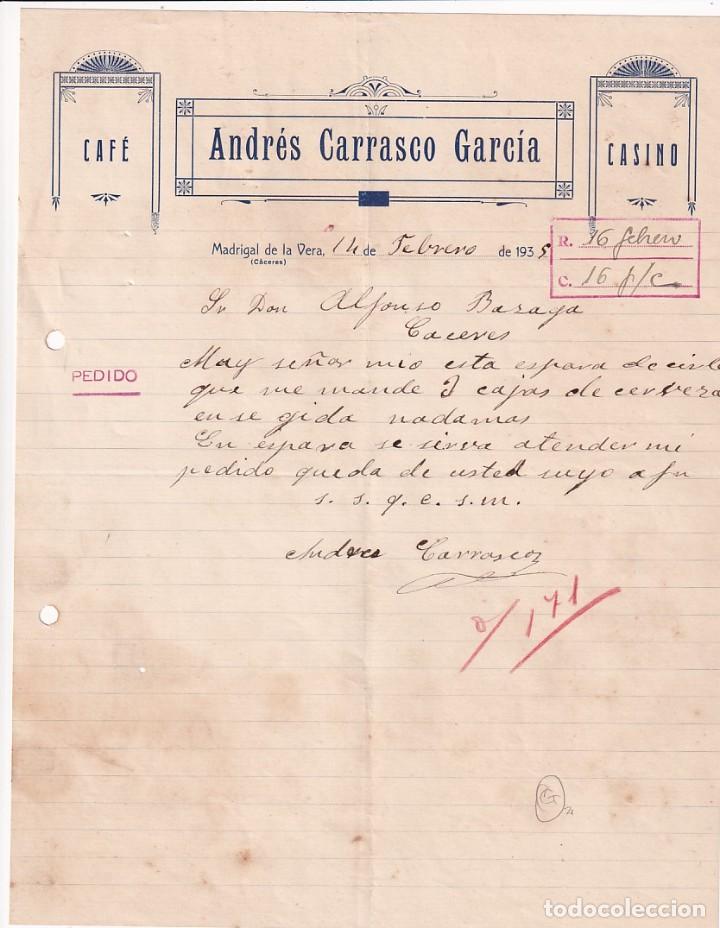 CAFÉ
Andrés Carrasco García
CASINO
Madrigal de la Vera, 14 de Febrero de 1935
(Cáceres)
R. 16 febrero
C. 16 f/c
Sr Don Alfonso Bazaga
Caceres
PEDIDO
Muy señor mio esta espara decirle
que me mande 3 cajas de cerveza
en se gida nadamas
En espara se sirva atender mi
pedido queda de usted suyo afn
s. s. q. e. s. m.
Andres Carrasco
171
todocoleccion